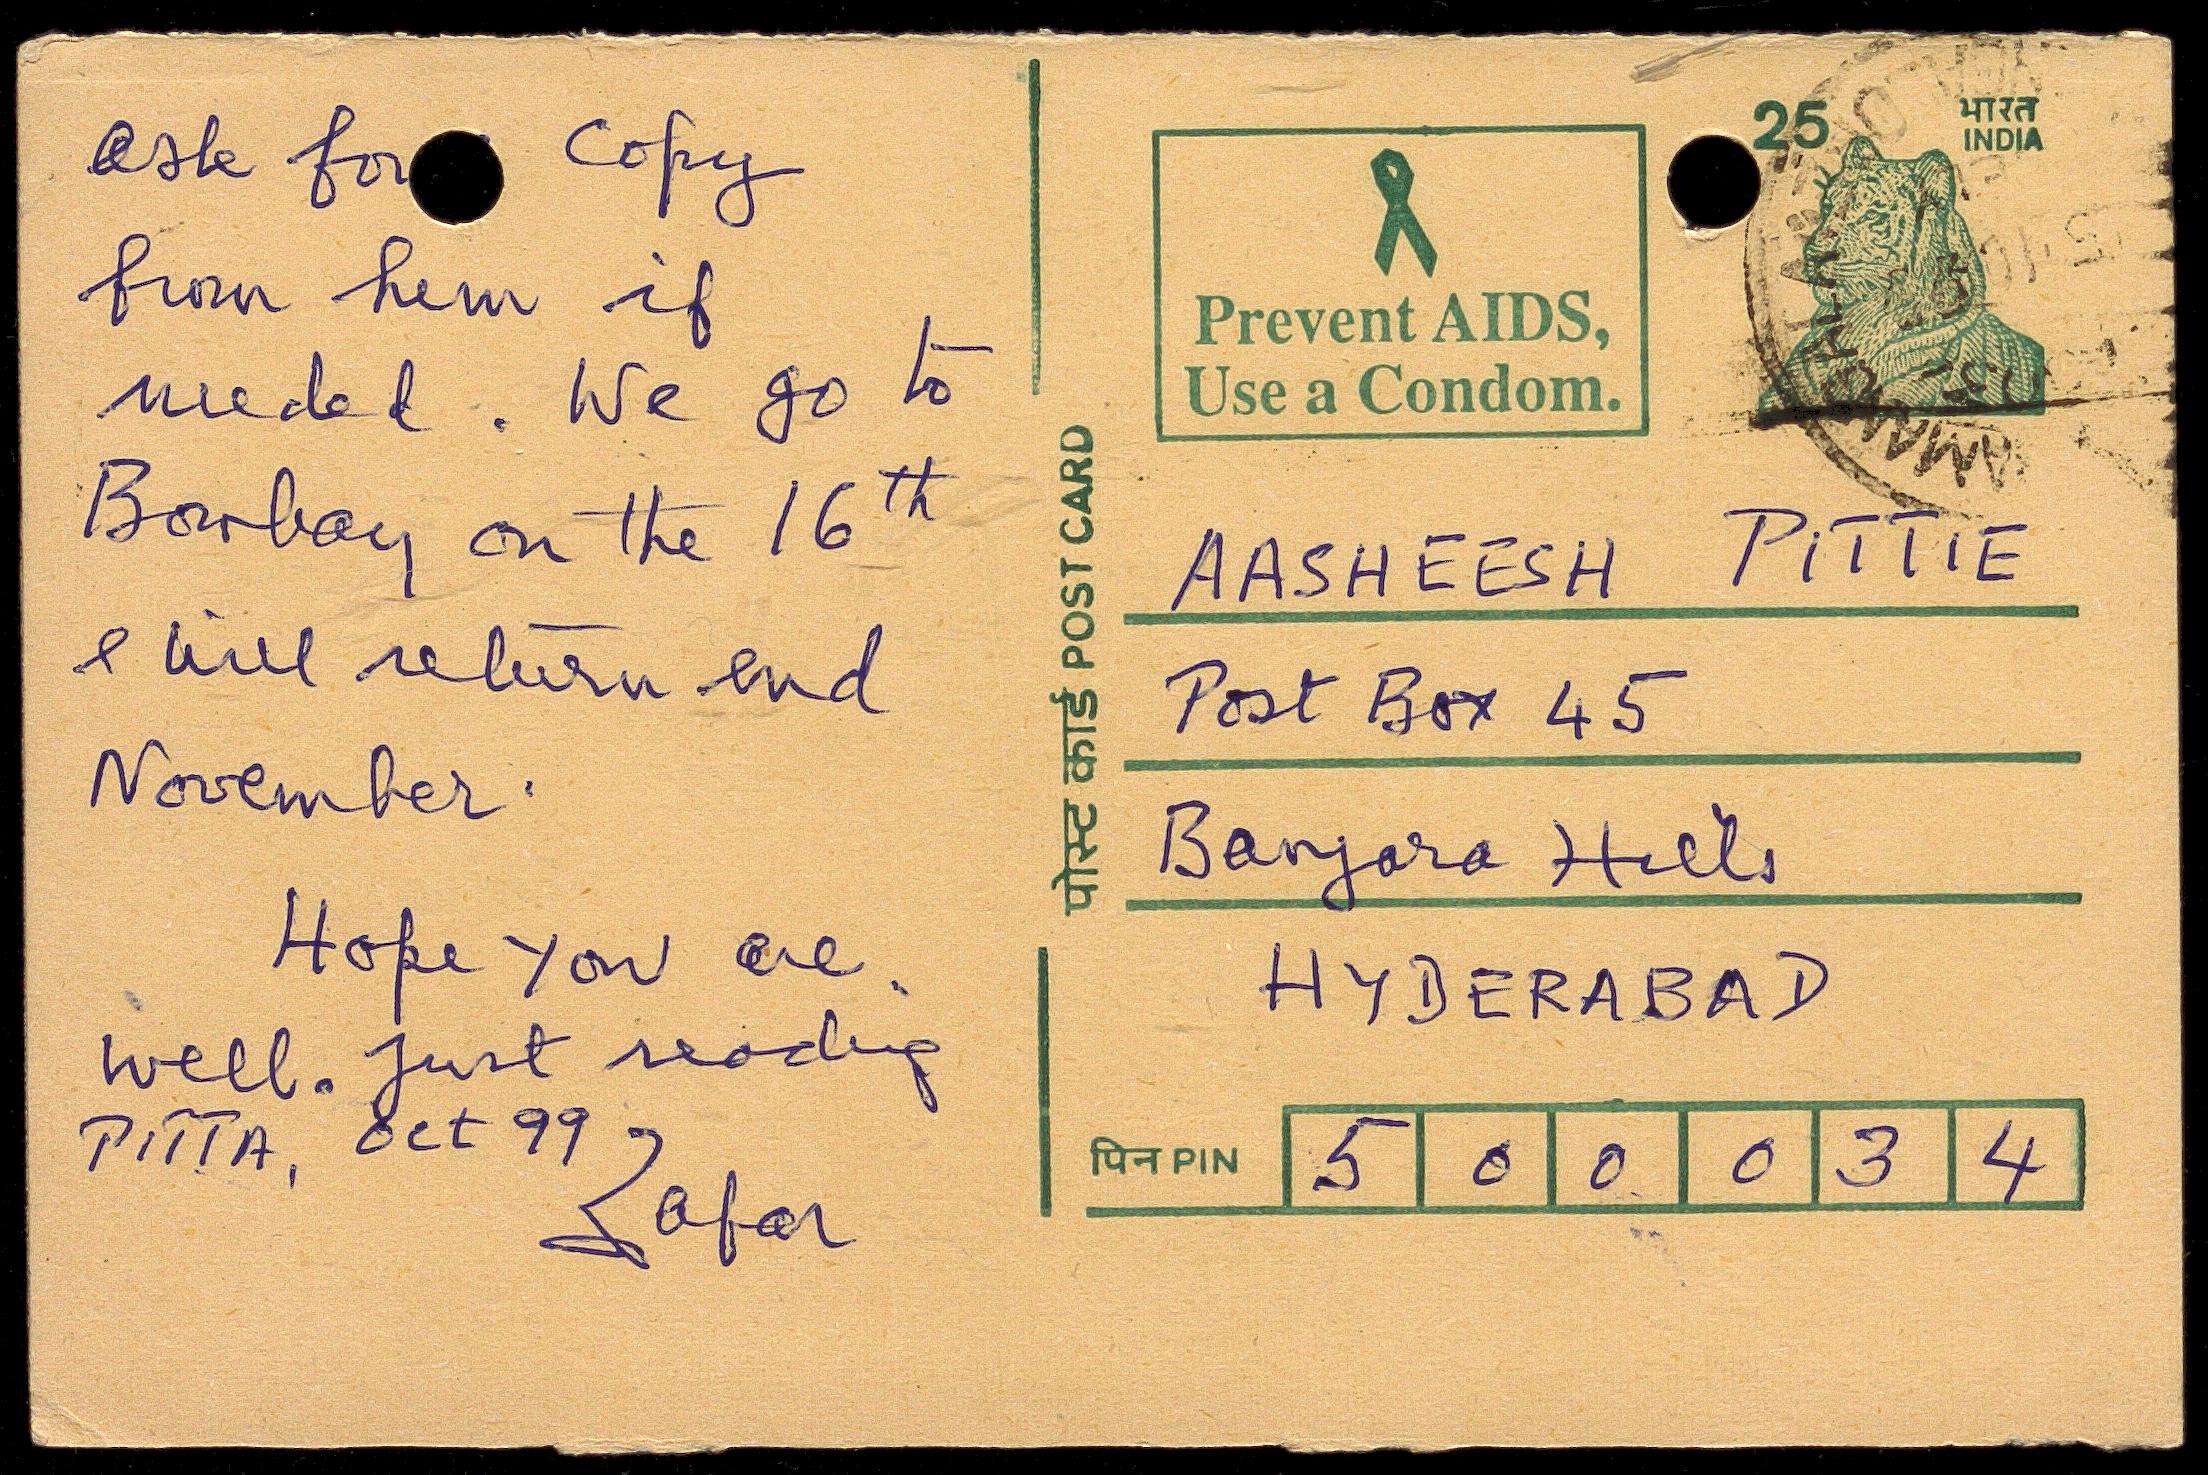 ask for copy
from him if
needed. We go to
Bombay on the 16th
& will return end
November.
Hope you are
well. Just reading
PITTA, Oct 99
Zafar
पोस्ट कार्ड POST CARD
Prevent AIDS,
Use a Condom.
25
भारत
INDIA
AASHEESH PITTIE
Post Box 45
Banjara Hills
HYDERABAD
पिन PIN 500034